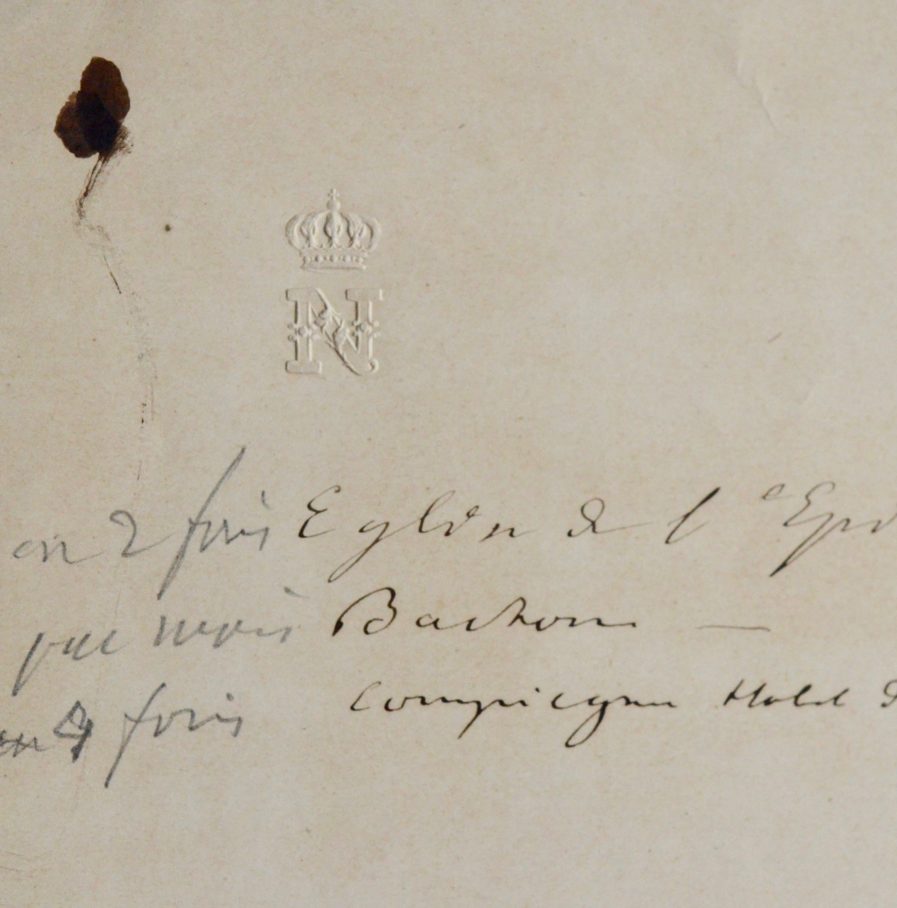 N
en 2 fois Eglise de l'
par mois
en 4 fois Compiegne Hotel d